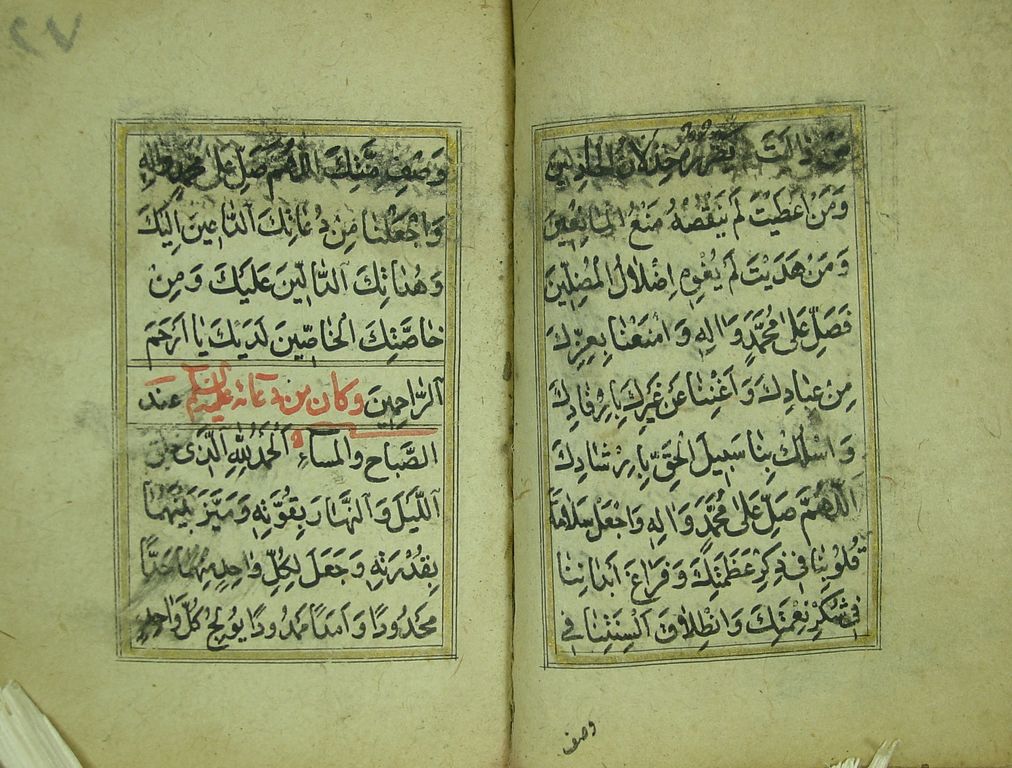 واليت خذلان الخاذلين
وَمَنْ اَعْطَيْتَ لَمْ يَنْقُصْهُ مَنْعُ الْمَانِعِينَ
وَمَنْ هَدَيْتَ لَمْ يُغْوِهِ اِضْلَالُ الْمُضِلِّينَ
فَصَلِّ عَلىٰ مُحَمَّدٍ وَاٰلِهِ وَامْنَعْنَا بِعِزِّكَ
مِنْ عِبَادِكَ وَاَغْنِنَا عَنْ غَيْرِكَ بِاِرْفَادِكَ
وَاسْلُكْ بِنَا سَبِيلَ الْحَقِّ بِاِرْشَادِكَ
اَللّٰهُمَّ صَلِّ عَلىٰ مُحَمَّدٍ وَاٰلِهِ وَاجْعَلْ سَلَامَةَ
قُلُوبِنَا فِي ذِكْرِ عَظَمَتِكَ وَفَرَاغَ اَبْدَانِنَا
فِي شُكْرِ نِعْمَتِكَ وَانْطِلَاقَ اَلْسِنَتِنَا فِي
وصف
٢٧
وَصْفِ مِنَّتِكَ اَللّٰهُمَّ صَلِّ عَلىٰ مُحَمَّدٍ وَاٰلِهِ
وَاجْعَلْنَا مِنْ دُعَاتِكَ الدَّاعِينَ اِلَيْكَ
وَهُدَاتِكَ الدَّالِّينَ عَلَيْكَ وَمِنْ
خَاصَّتِكَ الْخَاصِّينَ لَدَيْكَ يَا اَرْحَمَ
الرَّاحِمِينَ وكان من دعائه عليه السلام عند
الصَّبَاحِ وَالْمَسَاءِ اَلْحَمْدُ لِلّٰهِ الَّذِى خلق
اللَّيْلَ وَالنَّهَارَ بِقُوَّتِهِ وَمَيَّزَ بَيْنَهُمَا
بِقُدْرَتِهِ وَجَعَلَ لِكُلِّ وَاحِدٍ مِنْهُمَا حَدًّا
مَحْدُودًا وَاَمَدًا مَمْدُودًا يُولِجُ كُلَّ وَاحِدٍ